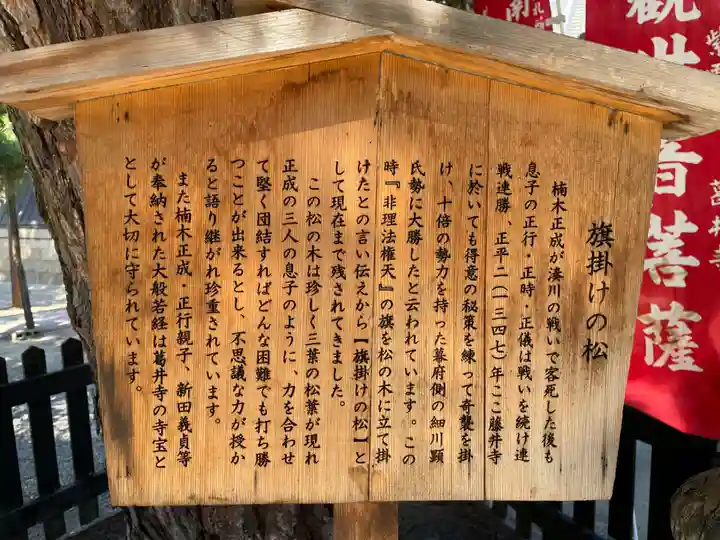 旗掛けの松
楠木正成が湊川の戦いで客死した後も
息子の正行・正時・正儀は戦いを続け連
戦連勝、正平二(一三四七)年ここ藤井寺
に於いても得意の秘策を練って奇襲を掛
け、十倍の勢力を持った幕府側の細川顕
氏勢に大勝したと云われています。この
時『非理法権天』の旗を松の木に立て掛
けたとの言い伝えから【旗掛けの松】と
して現在まで残されてきました。
この松の木は珍しく三葉の松葉が現れ
正成の三人の息子のように、力を合わせ
て堅く団結すればどんな困難でも打ち勝
つことが出来るとし、不思議な力が授か
ると語り継がれ珍重されています。
また楠木正成・正行親子、新田義貞等
が奉納された大般若経は葛井寺の寺宝と
して大切に守られています。
南
観世音菩薩